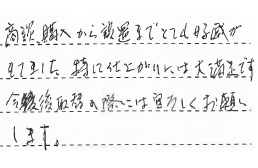 商談、購入から諸過までとても好感が
もてました。特に仕上がりには大満足です
今後後取替の際には宜しくお願い
します。